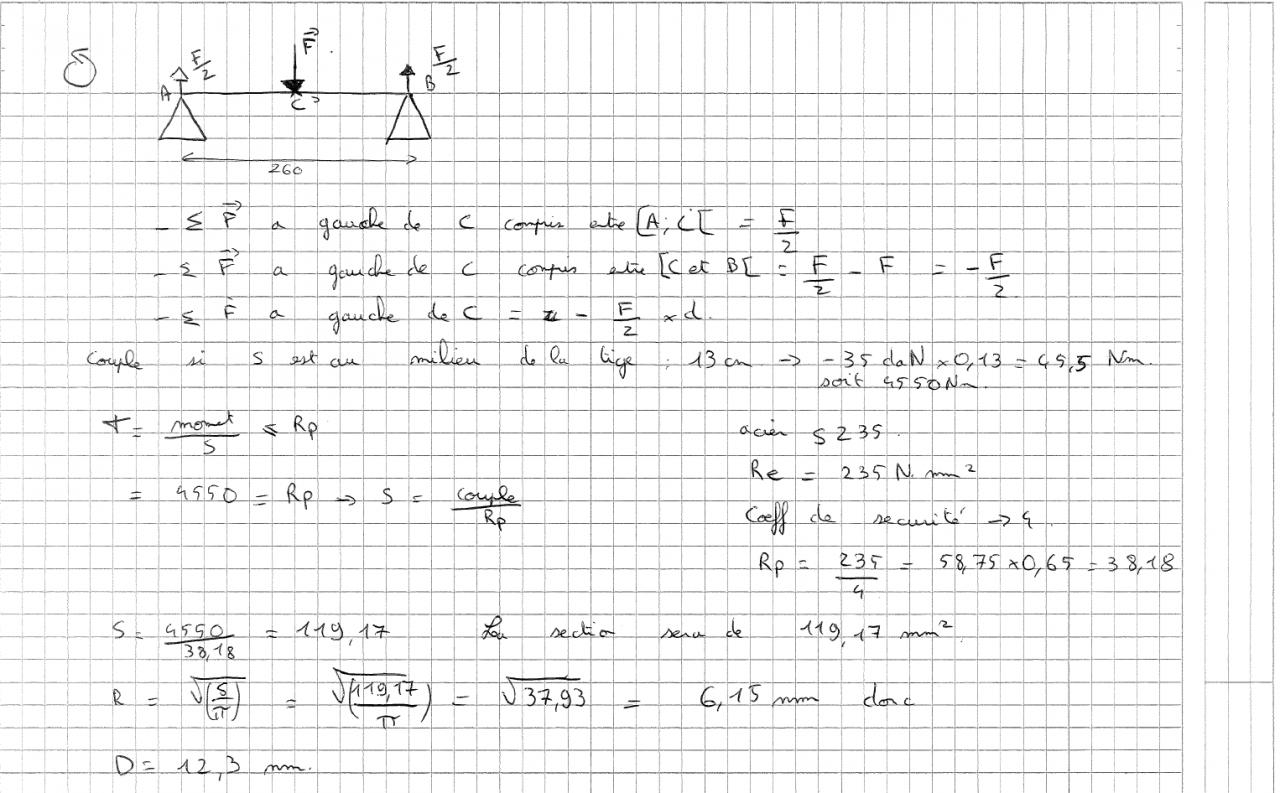 5
F/2 F⃗ F/2
A C B
260
- Σ F⃗ a gauche de C compris entre [A; C[ = F/2
- Σ F⃗ a gauche de C compris entre [C et B[ = F/2 - F = - F/2
- Σ F a gauche de C = - F/2 × d.
Couple si S est au milieu de la tige : 13 cm → - 35 daN × 0,13 = 45,5 Nm.
soit 4550 Nm.
= moment/S ≤ Rp
acier S 235.
Re = 235 N. mm²
= 4550 = Rp → S = couple/Rp
Coeff de securité → 4
Rp = 235/4 = 58,75 × 0,65 = 38,18
S = 4550/38,18 = 119,17 La section sera de 119,17 mm²
R = √(S/π) = √(119,17/π) = √37,93 = 6,15 mm donc
D = 12,3 mm.